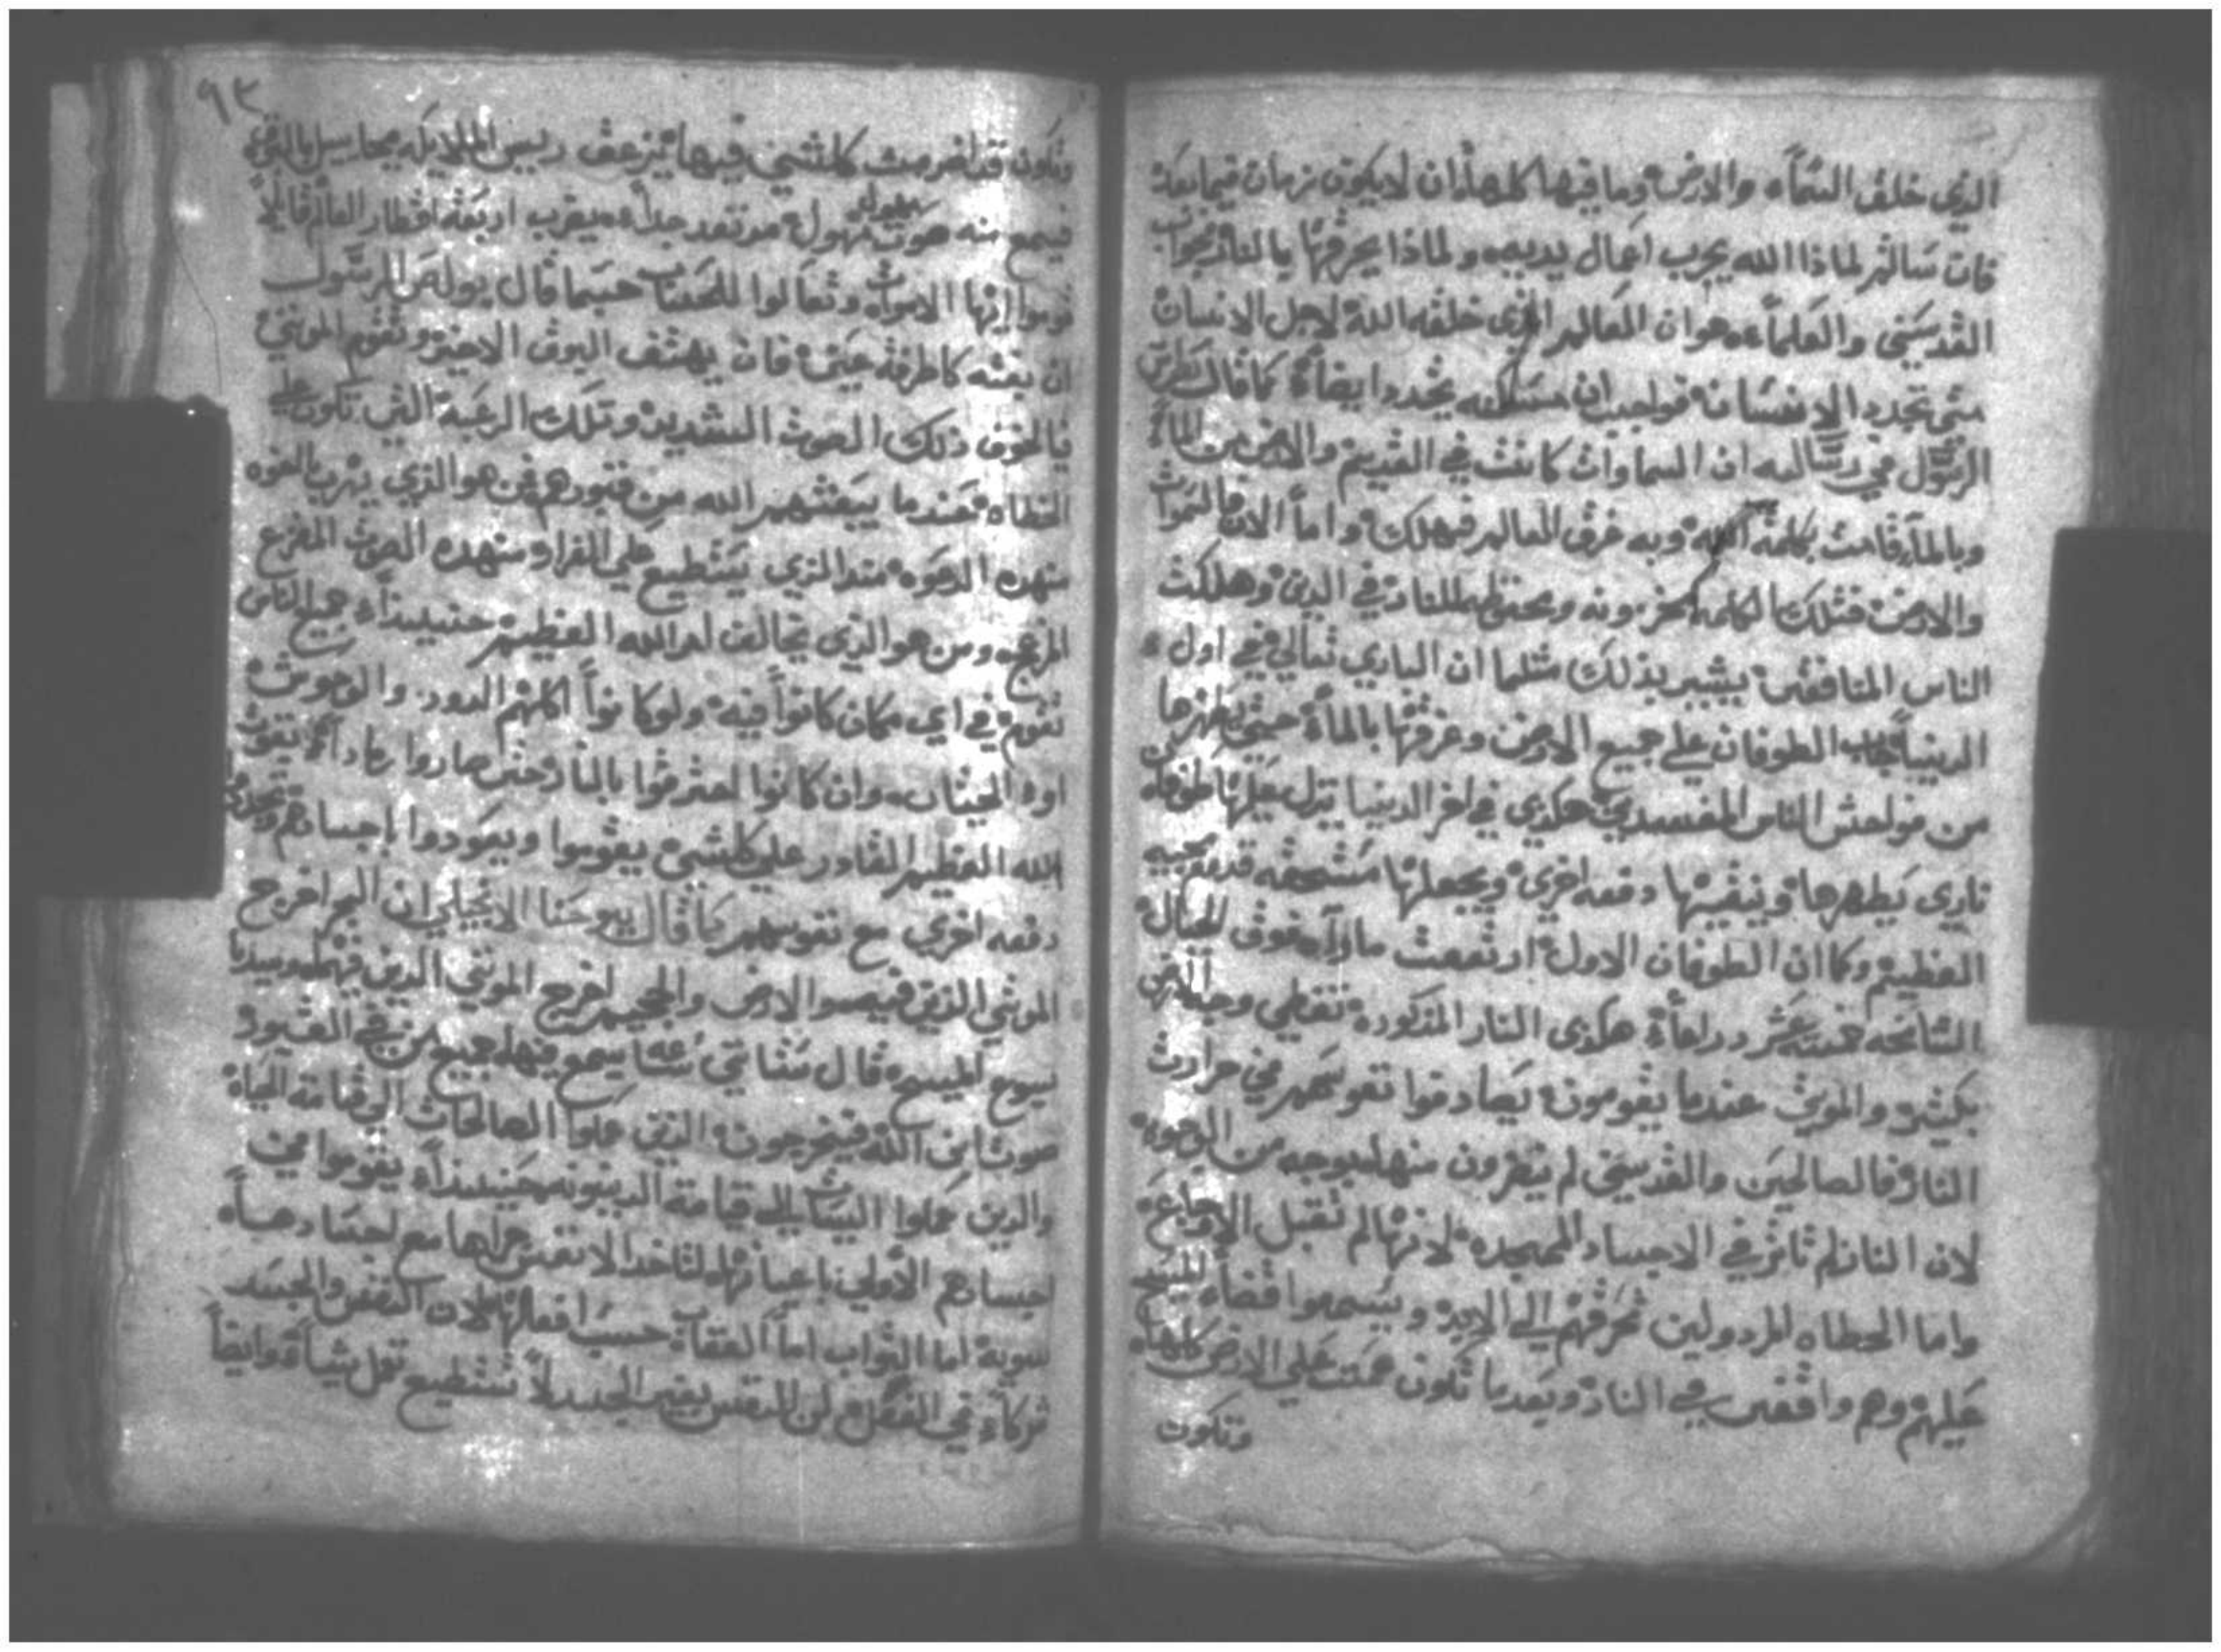 الذي خلق السماء والارض وما فيها كلها ان لا يكون زمان فيما بعد
فان سالتم لماذا الله يخرب اعمال يديه ولماذا يحرقها بالنار فجواب
القديسين والعلماء هو ان العالم الذي خلقه الله لاجل الانسان
متى تجدد الانسان فواجب ان مسكنه يتجدد ايضاً كما قال بطرس
الرسول في رسالته ان السماوات كانت في القديم والارض من الماء
وبالماء قامت بكلمة الله وبه غرق العالم فهلك واما الان فالسموات
والارض فتلك الكلمة مخزونه ومحتفظه للنار في الدين وهلكت
الناس المنافقين يشير بذلك مثلما ان الباري تعالي في اول
الدنيا جاب الطوفان علي جميع الارض وغرقها بالماء حتي يطهرها
من فواحش الناس المفسدين هكذي في اخر الدنيا ينزل عليها طوفان
ناري يطهرها وينقيها دفعه اخري ويجعلها مستحقه قدام مجيه
العظيم وكما ان الطوفان الاول ارتفعت ماوآه فوق الجبال
الشامخه خمسة عشر دراعاً هكذى النار المذكوره تغطي وجه الارض
بكيثر والموتي عندما يقومون يصادفوا نفوسهم في حرارت
النار فالصالحين والقديسين لم يتضررون منها بوجه من الوجوه
لان النار لم تاثر في الاجساد الممجده لانها لم تقبل الاوجاع
واما الخطاه المردولين تحرقهم الي الابد ويسمعوا قضاء المسيح
عليهم وهم واقفين في النار وبعدما تكون عمت علي الارض كلها
وتكون
٩٣
وتكون قد اضرمت كلشي فيها يزعق ريس الملايكه ميخاييل بالبوق
فيسمع منه صوت مهول مرتعد جداً يضرب اربعة اقطار العالم قايلاً
قوموا ايها الاموات وتعالوا للحساب حسبما قال بولص الرسول
ان بغته كاطرفة عين فان يهتف البوق الاخير وتقوم الموتي
فالخوف ذلك الصوت الشديد وتلك الرعبة التي تكون علي
الخطاه عندما يبعثهم الله من قبورهم فمن هو الذي يهرب بالقوه
منهده الدعوه منذا الذي يستطيع علي الفرار منهده الصوت المفزع
المزعج ومن هو الذي يخالف امر الله العظيم حنييذاً جميع الناس
تقوم في اي مكان كانوا فيه ولو كانوا اكلهم الدود والوحوش
اود الحيتان وان كانوا احترقوا بالنار حتى صاروا رماداً بقوت
الله العظيم القادر علي كلشي يقوموا ويعودوا باجسادهم
دفعه اخري مع نفوسهم كما قال يوحنا الانجيلي ان البحر اخرج
الموتي الذين فيه والارض والجحيم اخرج الموتي الدين فيهما وسيدنا
يسوع المسيح قال ستاتي ساعه يسمع فيها جميع من في القبور
صوت ابن الله فيخرجون الذين عملوا الصالحات الي قيامة الحياة
والدين عملوا السيات الي قيامة الدينونه حنييذاً يقوموا في
اجسادهم الأولي باعيانها لتاخذ الانفس جزاها مع اجسادها
سوية اما الثواب اما العقاب حسب افعالها لان النفس والجسد
شركاء في الفعل لان النفس بغير الجسد لا تستطيع تعمل شياً وايضاً